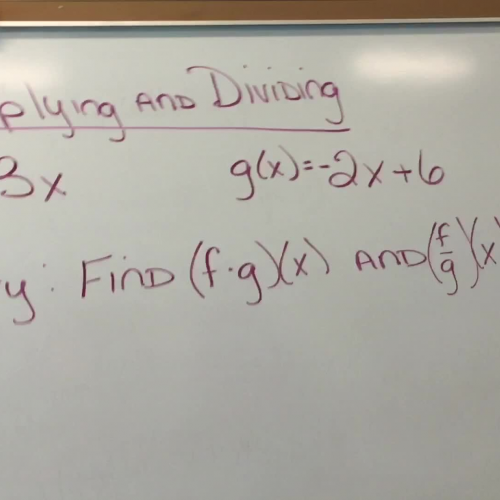 plying AND Dividing
3x g(x)=-2x+6
y: FIND (f·g)(x) AND (f/g)(x)